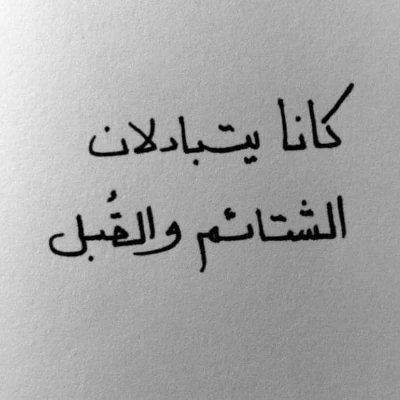 كانا يتبادلان
الشتائم والقُبل